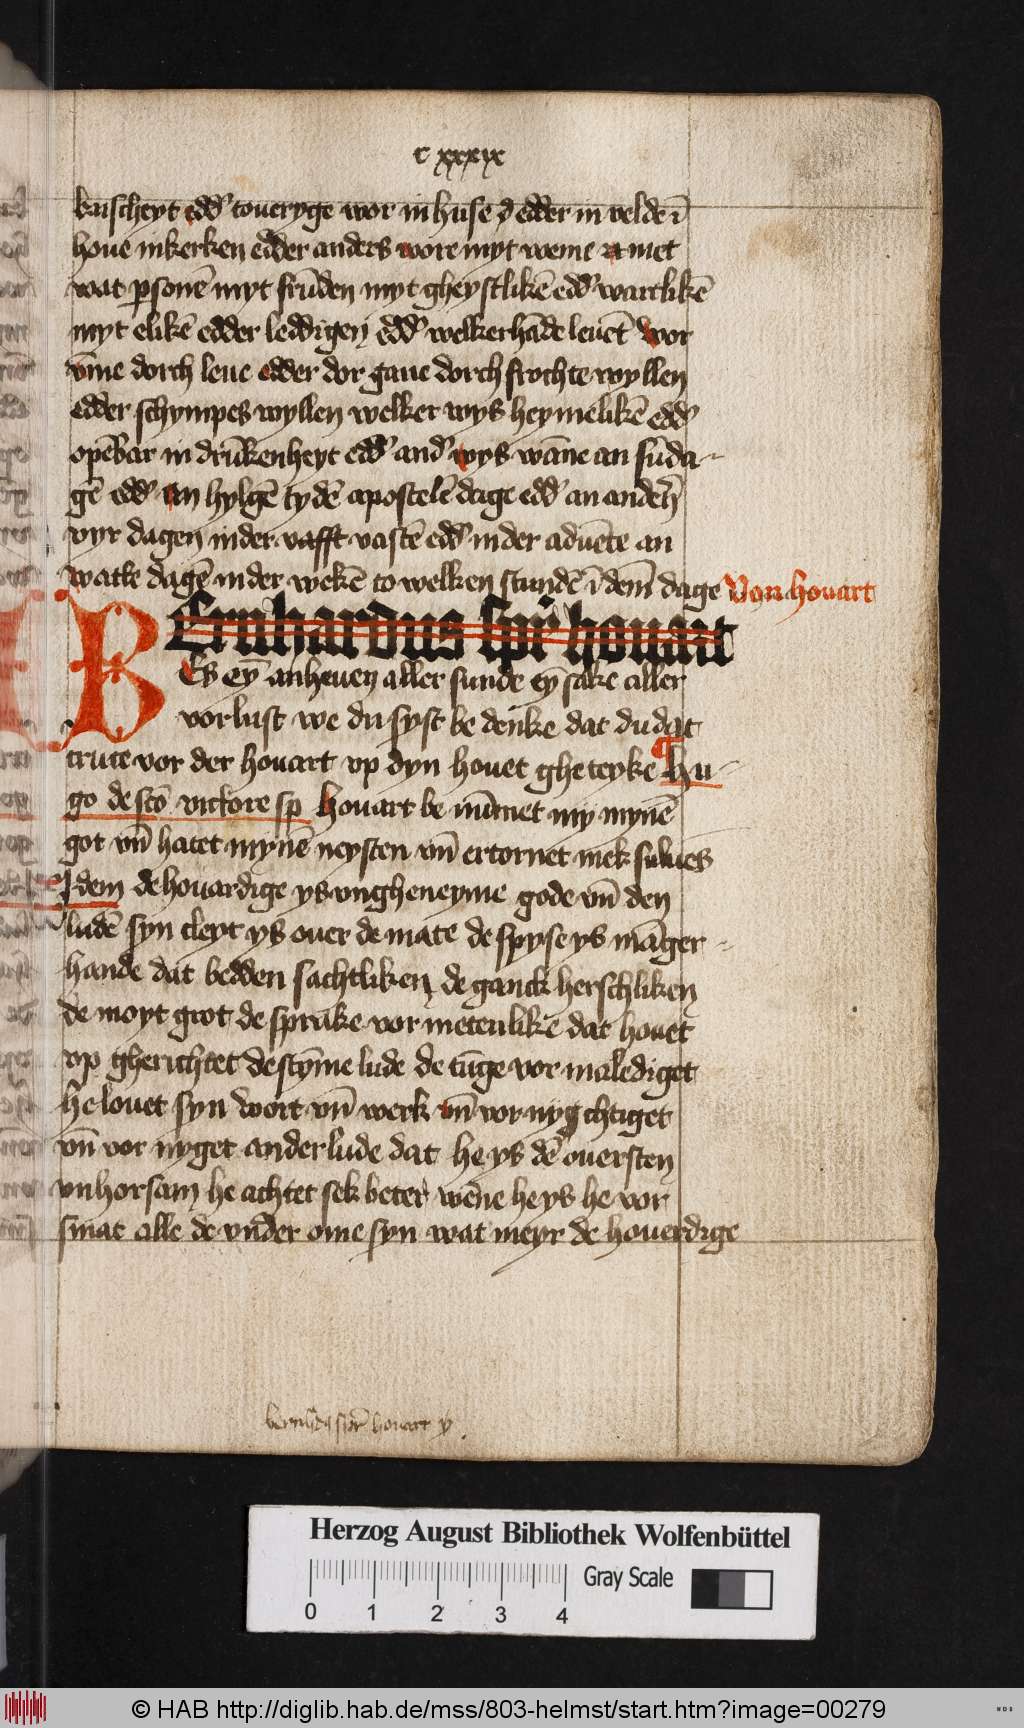 c xxxix
kuscheyt edd' toueryge wor in huse edder in velde ī
houe in kerken edder anders wore myt weme met
wat ꝑsonē myt frūden myt gheystlikē edd' wartlikē
myt elikē edder leddigen edd' welkerhāde leuēt wor
vm̄e dorch leue edder dor gaue dorch frochte wyllen
edder schympes wyllen welker wys heymelikē edd'
opēbar in drūkenheyt edd' and' wys wāne an sūda-
gē edd' an hylgē tydē apostelē dage edd' an anderē
vyr dagen in der vafft vastē edd' in der aduēte an
watke dagē in der wekē to welken stundē ī dem dage
Von houart
Bernhardus spr houart
Es eyn anheuen aller sunde eyn sake aller
vorlust we du syst be denke dat du dat
crute vor der houart vp dyn houet ghe teyke Hu-
go de scō victore sp Houart be nūmet my mynē
got vn̄ hatet mynē neysten vn̄ ertornet mek sulues
Idem de houardige ys vngheneyme gode vn̄ den
ludē syn cleyt ys ouer de mate de spyse ys māger-
hande dat bedden sachtliken de ganck herschliken
de moyt grot de sprake vor metenlikē dat houet
vp gherichtet de stȳme lude de tūge vor malediget
he louet syn wort vn̄ werk vn̄ vor nygchtiget
vn̄ vor nyget ander lude dat he ys dē ouersten
vnhorsam he achtet sek beter wēne he ys he vor
smat alle de vnder ome syn wat meyr de houerdige
houart
Herzog August Bibliothek Wolfenbüttel
Gray Scale
0 1 2 3 4
© HAB http://diglib.hab.de/mss/803-helmst/start.htm?image=00279